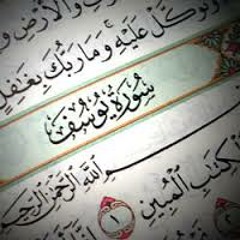 وَالْأَرْضِ
وَتَوَكَّلْ عَلَيْهِ ۚ وَمَا رَبُّكَ بِغَٰفِلٍ
سُورَةُ يُوسُفَ
اللَّهِ الرَّحْمَٰنِ الرَّحِيمِ
الْكِتَٰبِ الْمُبِينِ ١
٢